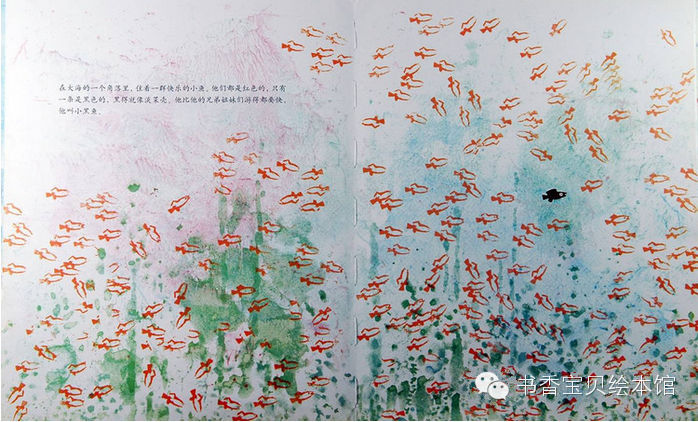 在大海的一个角落里，住着一群快乐的小鱼。他们都是红色的，只有
一条是黑色的，黑得就像淡菜壳。他比他的兄弟姐妹们游得都要快，
他叫小黑鱼。
书香宝贝绘本馆